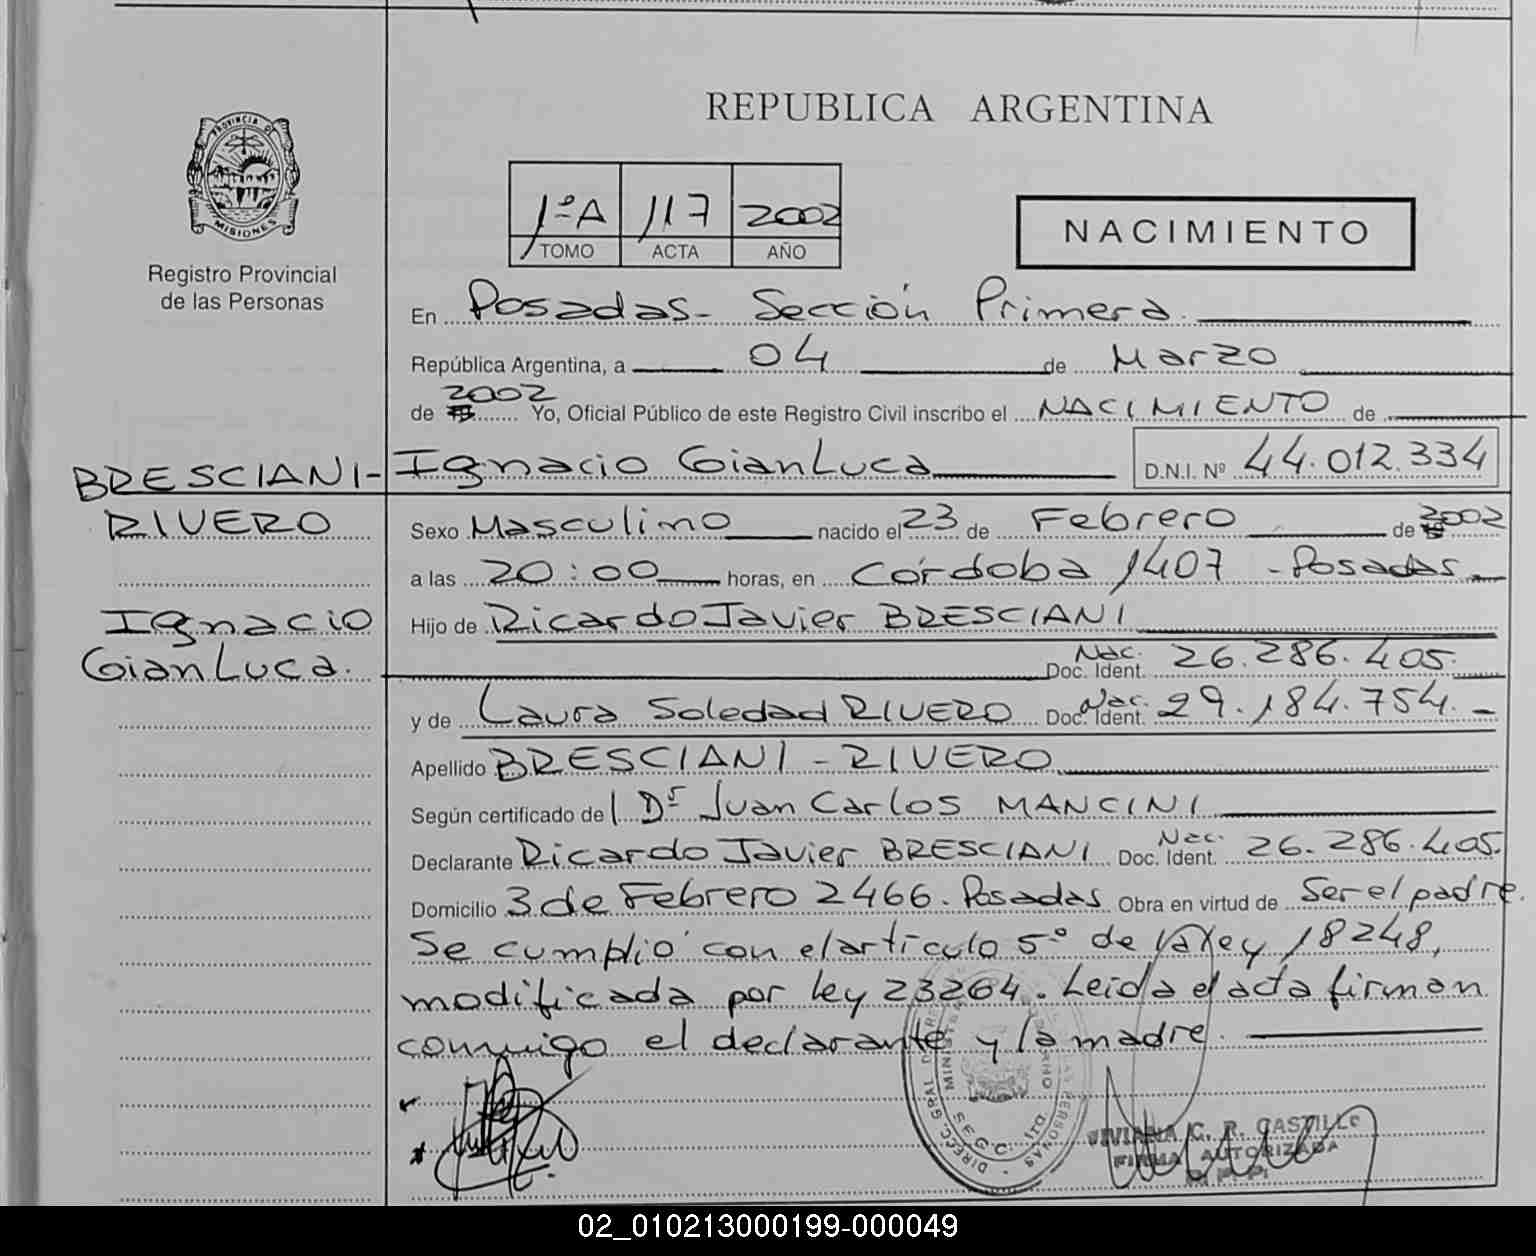 PROVINCIA DE
MISIONES
Registro Provincial
de las Personas
REPUBLICA ARGENTINA
1ºA 117 2002
TOMO ACTA AÑO
NACIMIENTO
En Posadas- Sección Primera.
República Argentina, a 04 de Marzo
de 2002 Yo, Oficial Público de este Registro Civil inscribo el NACIMIENTO de
Ignacio GianLuca D.N.I. Nº 44.012.334
BRESCIANI-
RIVERO
Ignacio
GianLuca.
Sexo Masculino nacido el 23 de Febrero de 2002
a las 20:00 horas, en Córdoba 1407 - Posadas
Hijo de Ricardo Javier BRESCIANI
Nac.
Doc. Ident. 26.286.405.
y de Laura Soledad RIVERO Nac. Doc. Ident. 29.184.754.-
Apellido BRESCIANI - RIVERO
Según certificado del Dr Juan Carlos MANCINI
Declarante Ricardo Javier BRESCIANI Nac. Doc. Ident. 26.286.405.
Domicilio 3 de Febrero 2466. Posadas Obra en virtud de Ser el padre.
Se cumplió con el artículo 5º de la ley 18248,
modificada por ley 23264. Leida el acta firman
conmigo el declarante y la madre.
VIVIANA C. R. CASTILLO
FIRMA AUTORIZADA
02_010213000199-000049